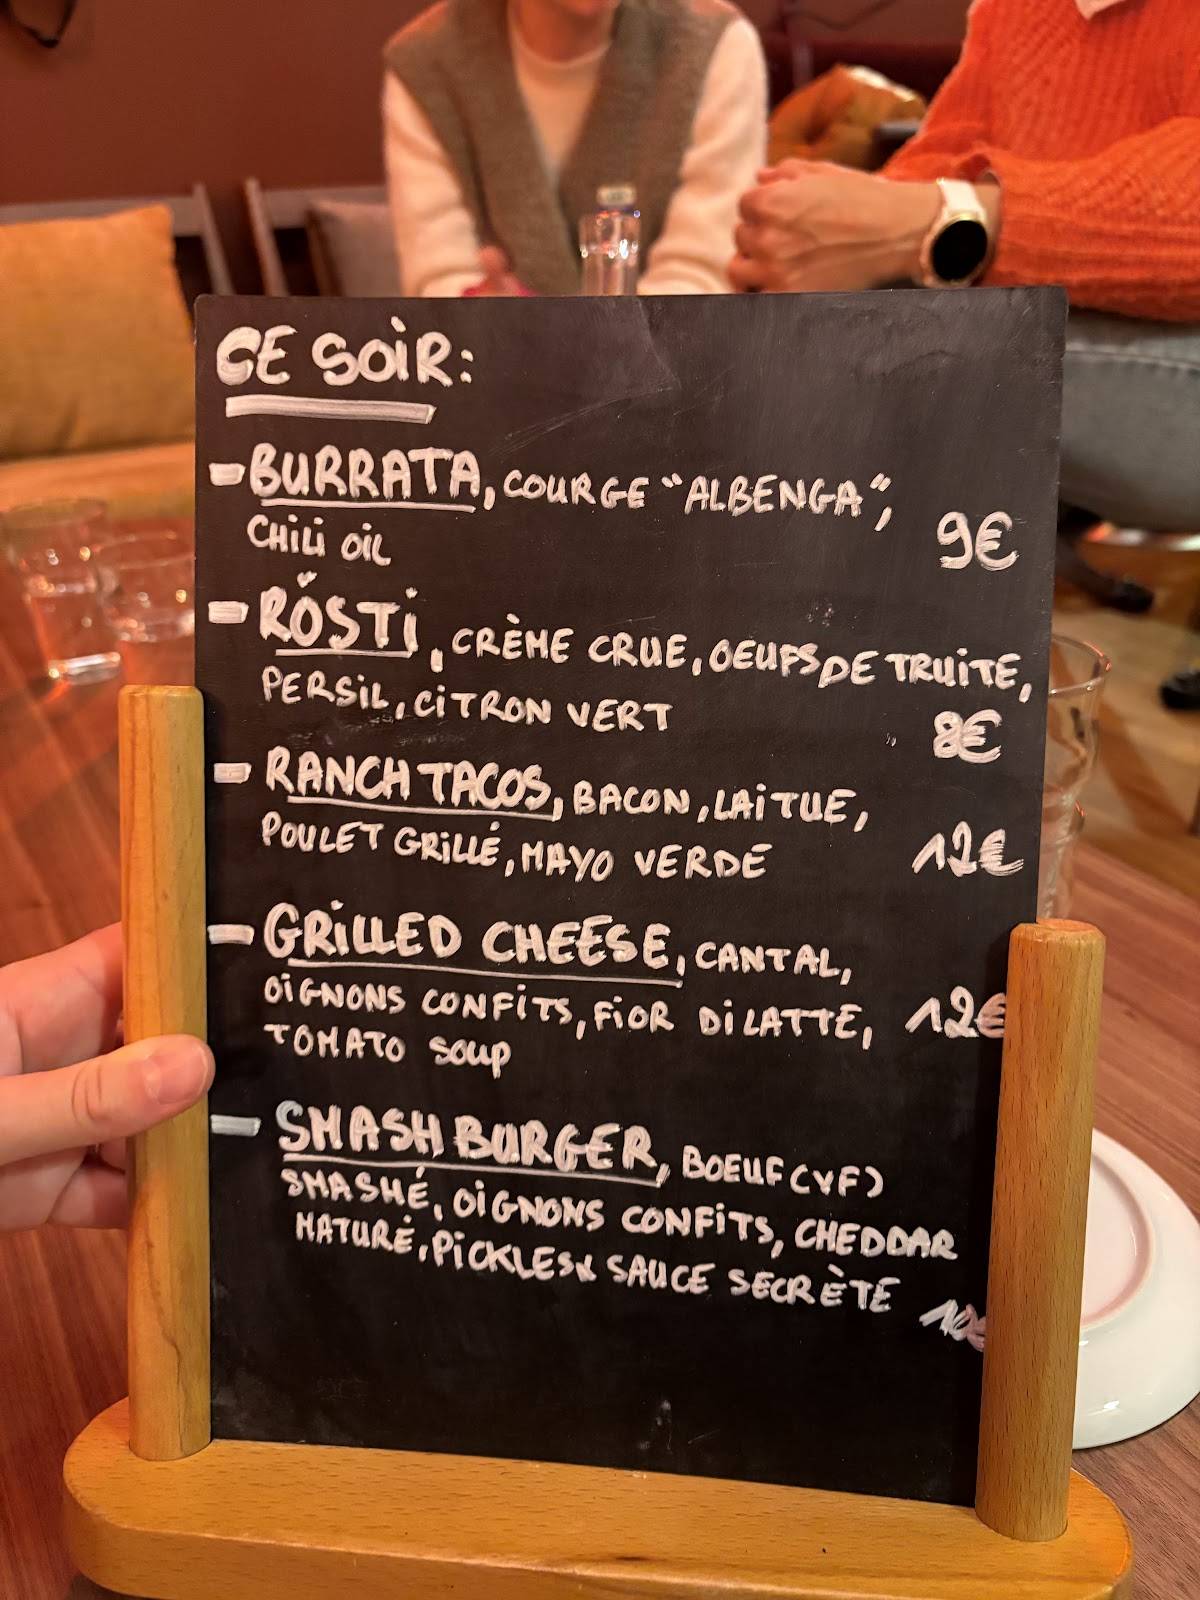 CE SOIR:
- BURRATA, COURGE "ALBENGA",
CHILI OIL 9€
- RÖSTI, CRÈME CRUE, OEUFS DE TRUITE,
PERSIL, CITRON VERT 8€
- RANCH TACOS, BACON, LAITUE,
POULET GRILLÉ, MAYO VERDE 12€
- GRILLED CHEESE, CANTAL,
OIGNONS CONFITS, FIOR DI LATTE, 12€
TOMATO SOUP
- SMASH BURGER, BOEUF (VF)
SMASHÉ, OIGNONS CONFITS, CHEDDAR
MATURÉ, PICKLES & SAUCE SECRÈTE
10€